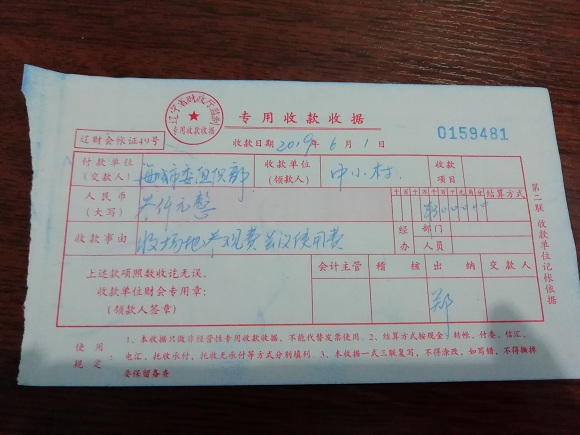 辽宁省财政厅监制
专用收款收据
专用收款收据
辽财会帐证49号
收款日期 2019年 6月 1日
0159481
付款单位
(交款人)
海城市委组织部
收款单位
(领款人)
中小村
收款
项目
人民币
(大写)
叁仟元整
千百十万千百十元角分
结算方式
收款事由
收场地参观费会议使用费
经
办
部门
人员
上述款项照数收讫无误。
收款单位财会专用章:
(领款人签章)
会计主管
稽 核
出 纳
交款人
郑
第二联 收款单位记帐依据
使用
规定
1、本收据只做非经营性专用收款收据,不能代替发票使用。2、结算方式按现金、转帐、付委、信汇、
电汇、托收承付、托收无承付等方式分别填列。3、本收据一式三联复写,不得涂改,如写错,不得撕掉
要保留备查